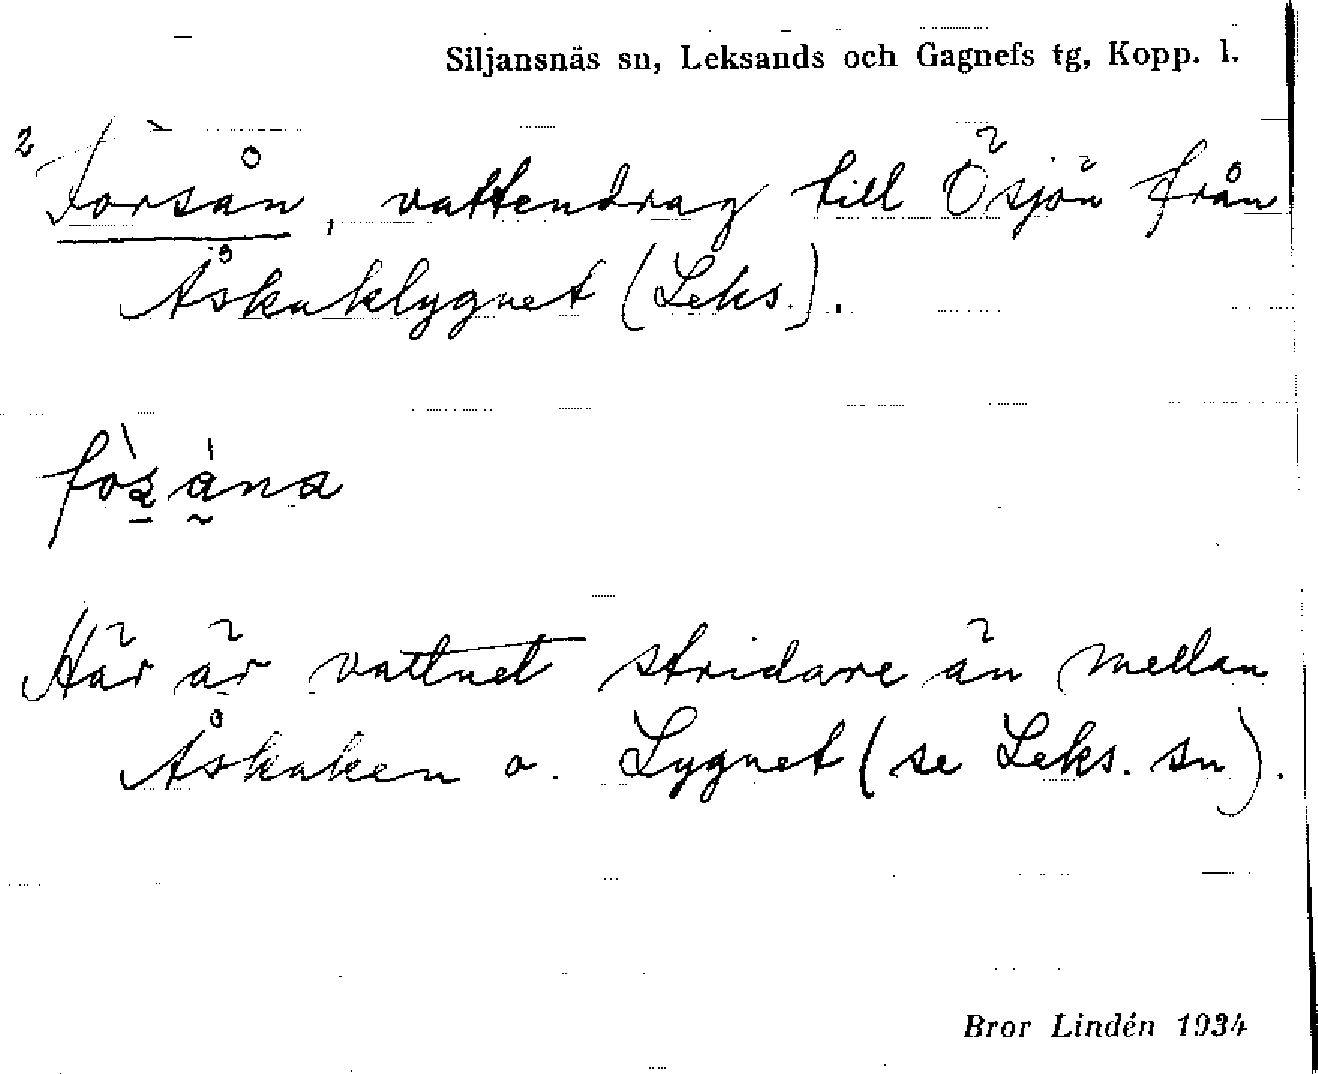 Siljansnäs sn, Leksands och Gagnefs tg, Kopp. l.
2 Forsån, vattendrag till Ösjön från
Åskaklygnet (Leks.).
Här är vattnet stridare än mellan
Åskaken o. Lygnet (se Leks. sn).
Bror Lindén 1934